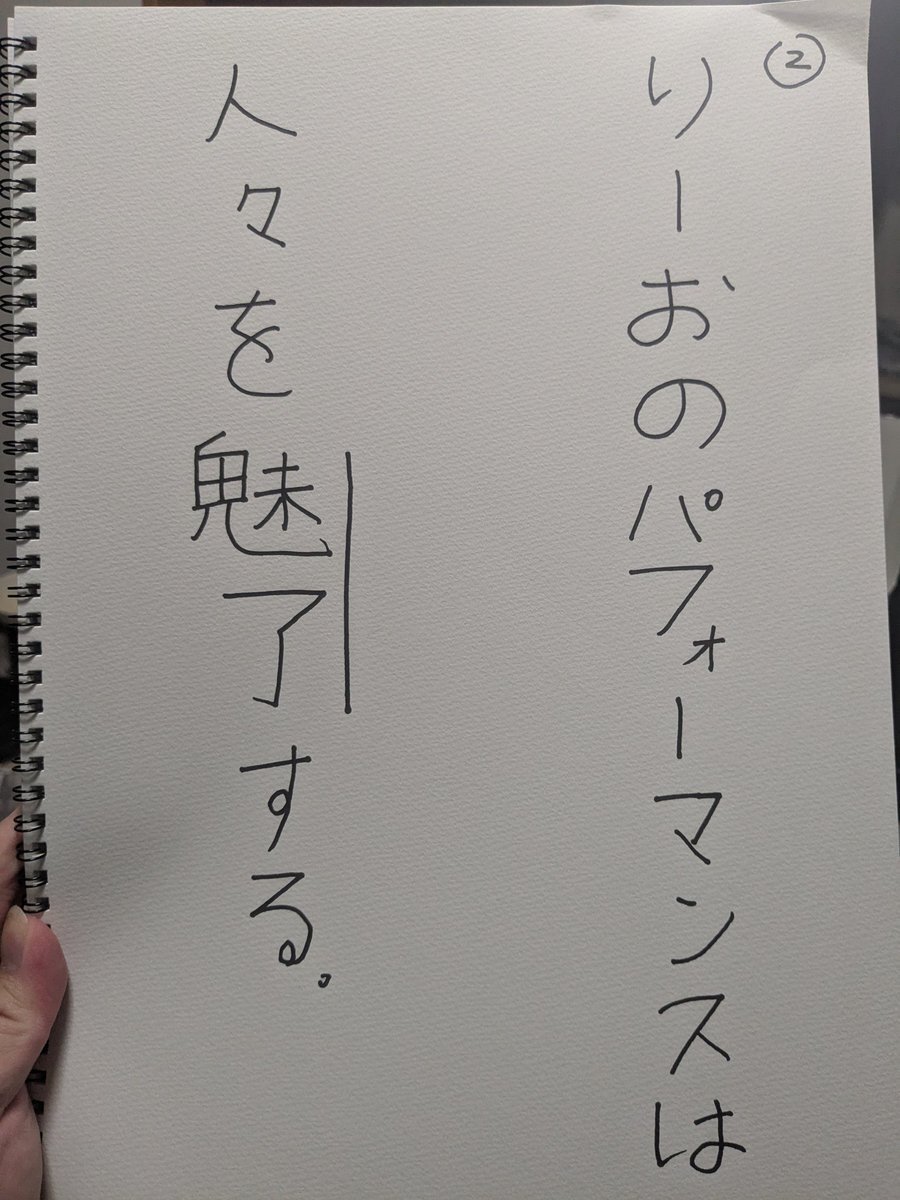 ②
りーおのパフォーマンスは
人々を魅了する。